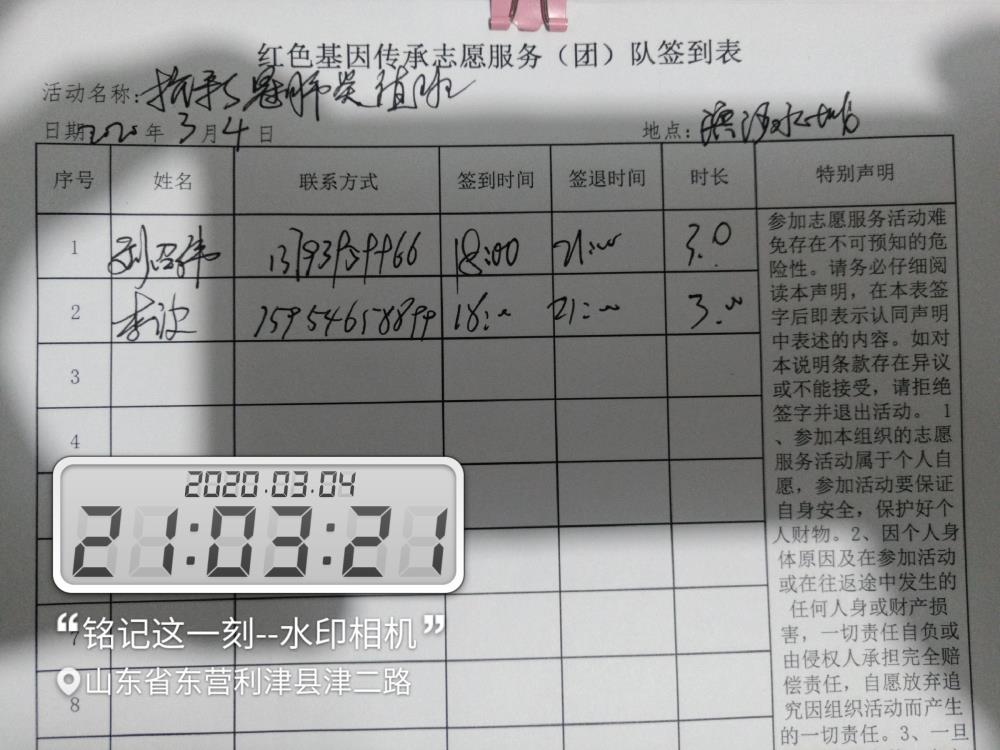 红色基因传承志愿服务（团）队签到表
活动名称：抗新冠肺炎值班
日期2020年3月4日 地点：
序号 姓名 联系方式 签到时间 签退时间 时长 特别声明
1 18:00 21:00 3.0
2 李波 15954658899 18:00 21:00 3.00
3
4
7
8
参加志愿服务活动难
免存在不可预知的危
险性。请务必仔细阅
读本声明，在本表签
字后即表示认同声明
中表述的内容。如对
本说明条款存在异议
或不能接受，请拒绝
签字并退出活动。 1
、参加本组织的志愿
服务活动属于个人自
愿，参加活动要保证
自身安全，保护好个
人财物。2、因个人身
体原因及在参加活动
或在往返途中发生的
任何人身或财产损
害，一切责任自负或
由侵权人承担完全赔
偿责任，自愿放弃追
究因组织活动而产生
的一切责任。3、一旦
2020.03.04
21:03:21
“铭记这一刻--水印相机”
山东省东营利津县津二路